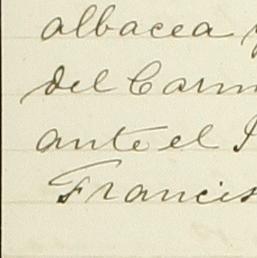 albacea
del Carm
ante el
Francis